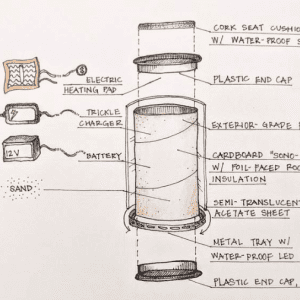 CORK SEAT CUSHIO
W/ WATER-PROOF S
ELECTRIC
HEATING PAD
PLASTIC END CAP
TRICKLE
CHARGER
EXTERIOR-GRADE
12V
BATTERY
CARDBOARD "SONO-
W/ FOIL-FACED ROO
INSULATION
SAND
SEMI-TRANSLUCENT
ACETATE SHEET
METAL TRAY W/
WATER-PROOF LED
PLASTIC END CAP,